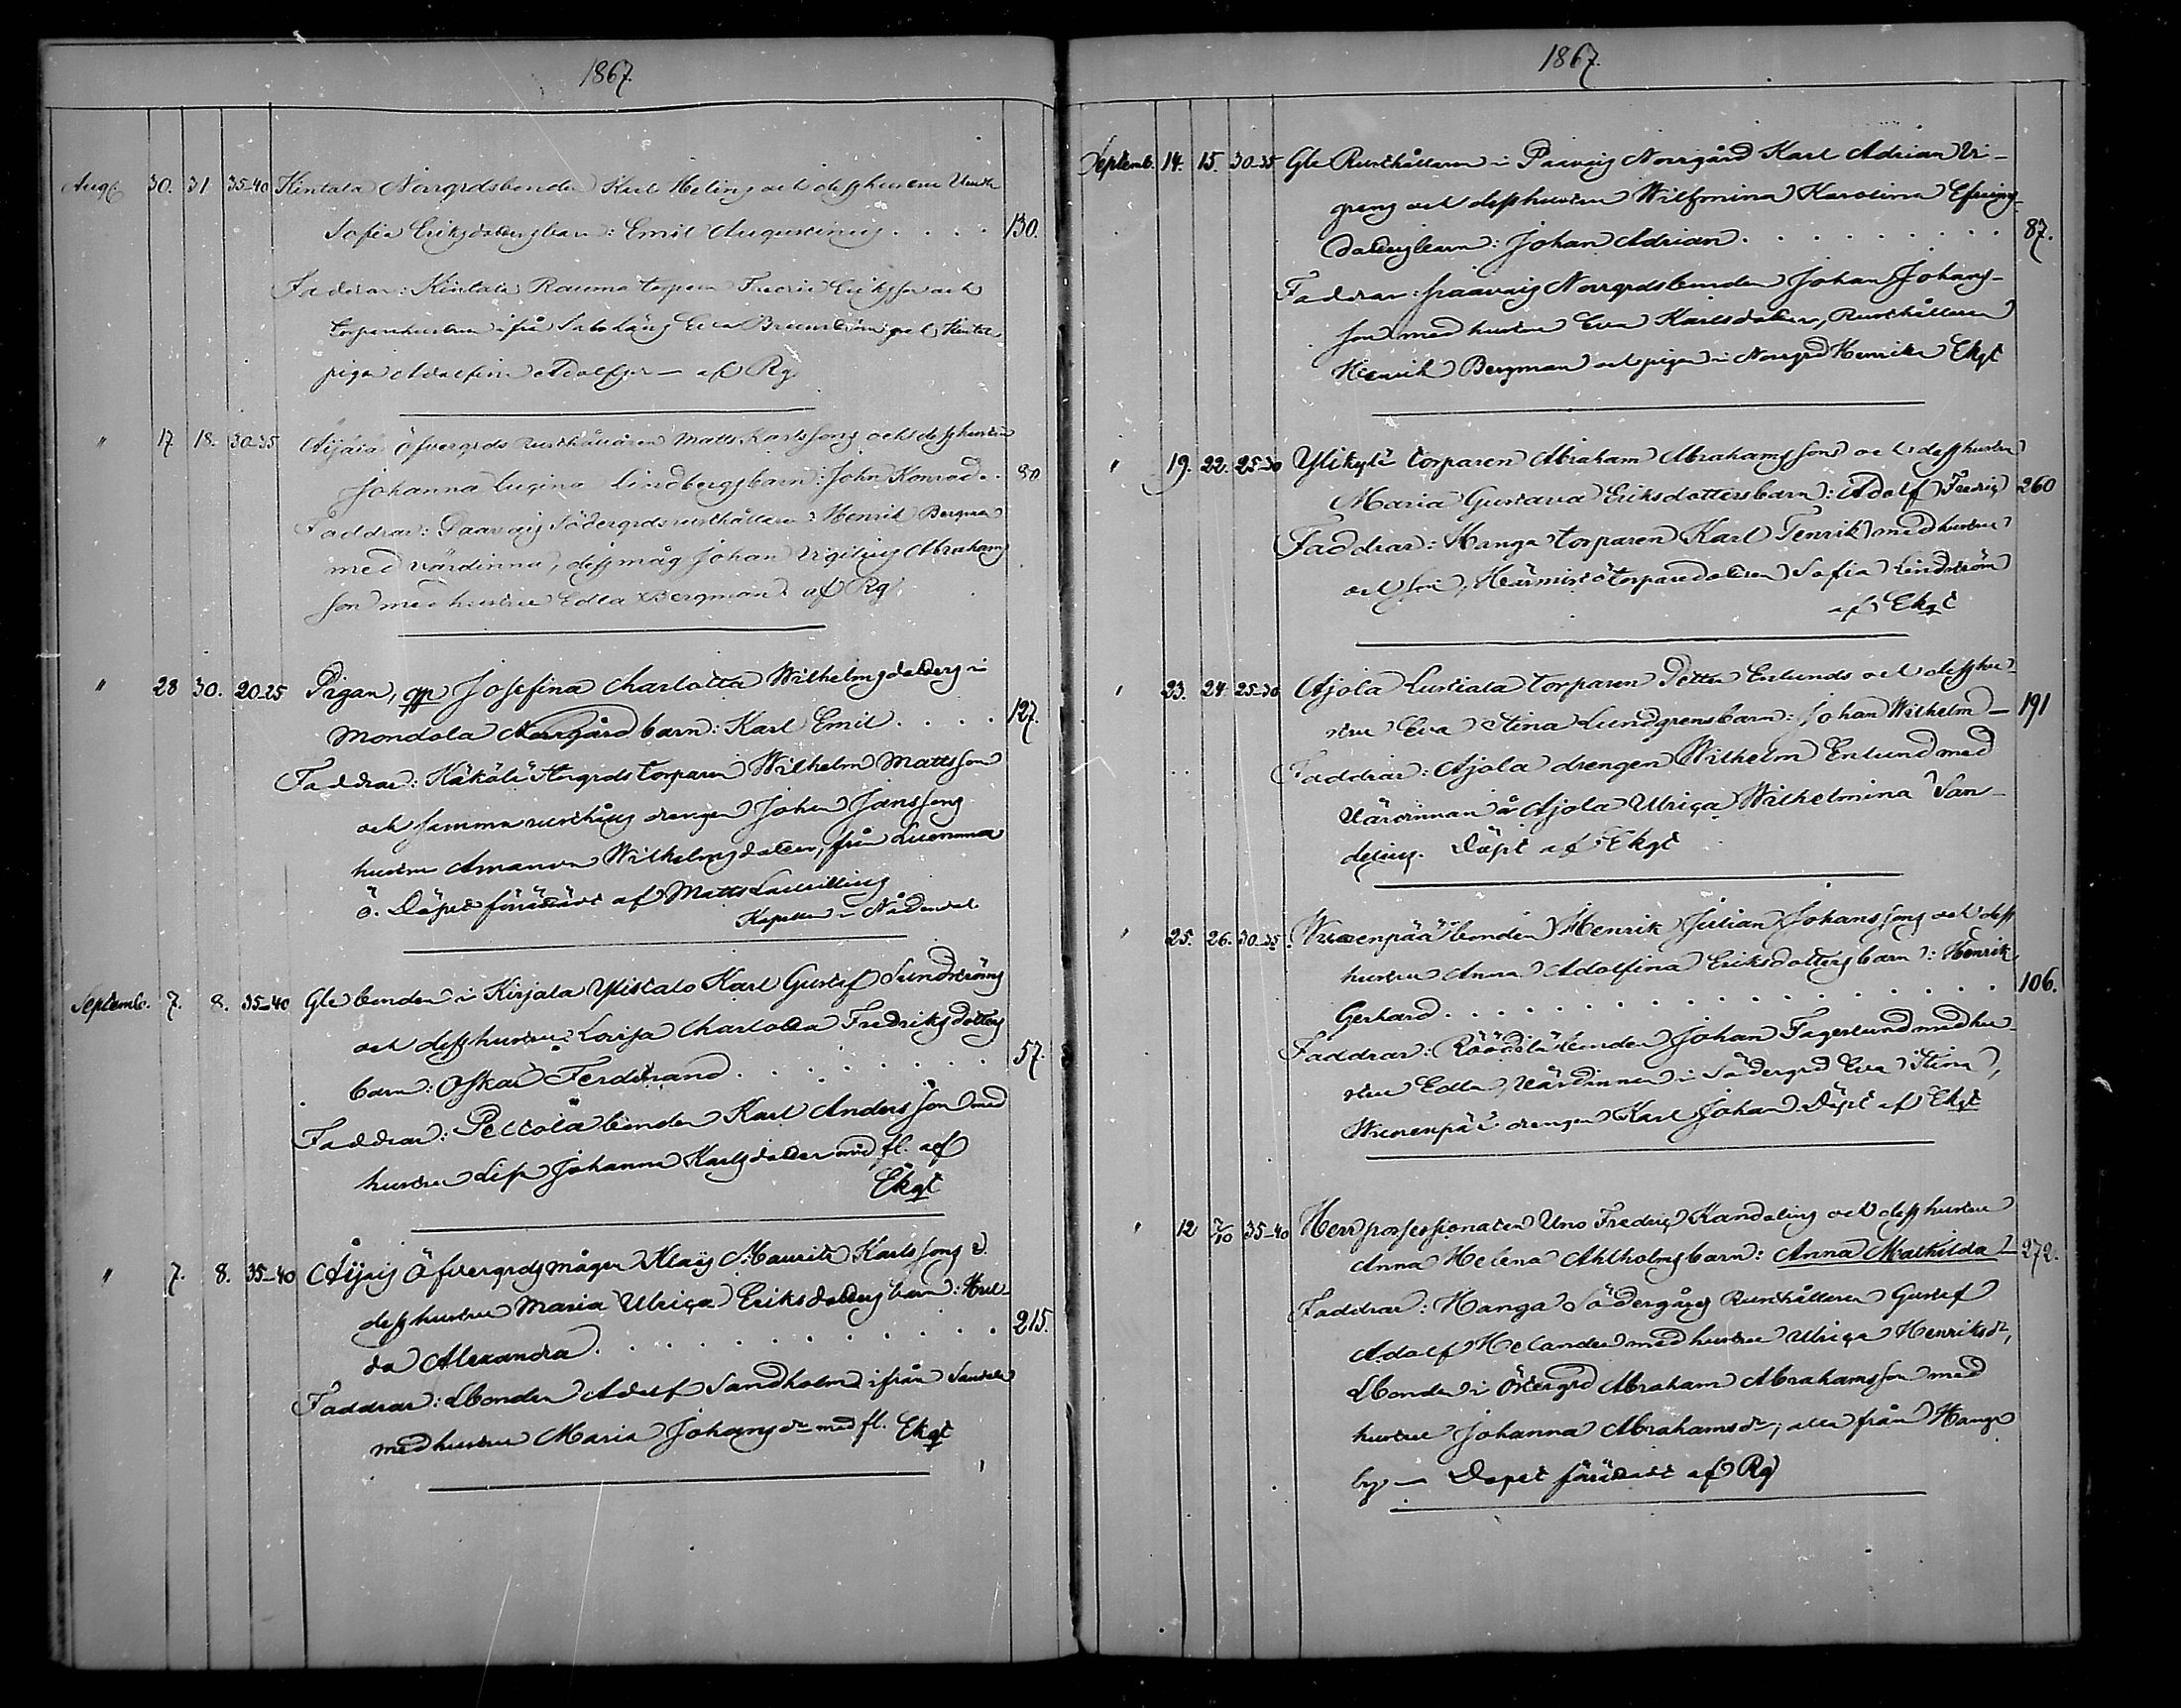 1867.
Aug. 30. 31. 35-40 Kintala Norrgrdsbonden Karl Helins och dess hustru
Sofia Eriksdotters barn: Emil Augustinus . . . . 130.
Faddrar: Kintala Rauma torparen Fredric Eriksson och
torparehustrun ifrån Eva och Kintala
pigan Adolfina Adolfs — af Rg
" 17 18. 30-35 Äijälä Öfvergrds rusthållaren Matts Karlssons och dess hustru
Johanna Lugina Lindbergs barn: John Konrad . . 80
Faddrar: Paavais Södergrds rusthållaren Henrik Bergman
med värdinna, dess måg Johan Vigilius Abrahams
son med hustru Edla Bergman af Rg
" 28 30. 20-25 Pigan, Josefina Charlotta Wilhelmsdotters i
Mondola Norrgård barn: Karl Emil . . . . 127.
Faddrar: Käkölä torparen Wilhelm Mattsson
och samma rusthålls drengen Johan Jansson
hustru Amanda Wilhelmsdotter, från Luonnonmaa
ö. Döpet förrättadt af Matts Laurillius
Kapellan i Nådendal
Septemb. 7. 8. 35-40 Gle bonden i Kirjala Ylistalo Karl Gustaf Sundströms
och dess hustru Lovisa Charlotta Fredriksdotters
barn: Oskar Ferdinand . . . . . . . . 57.
Faddrar: Peltola bonden Karl Andersson med
hustru Lisa Johanna Karlsdotter med fl. af
Ekqt
" 7. 8. 35-40 Äijäis Öfvergrds mågen Klas Maurits Karlssons o.
dess hustru Maria Ulrica Eriksdotters barn: Hul-
da Alexandra . . . . . . . . . . . . 215.
Faddrar: Bonden Adolf Sandholm ifrån
med hustru Maria Johansdr med fl. Ekqt
1867.
Septemb. 14. 15. 30-35 Gle Rusthållaren i Paavais Norrgård Karl Adrian Vi-
grens och dess hustru Wilhmina Karolina Efraims-
dotters barn: Johan Adrian . . . . . . . . . 87.
Faddrar: Paavais Norrgrdsbonden Johan Johans-
son med hustru Eva Karlsdotter, Rusthållaren
Henrik Bergman och pigan i Norrgrd Henrika Ekqt
" 19. 22. 25-30 Ylikylä torparen Abraham Abrahamssons och dess hustru
Maria Gustava Eriksdotters barn: Adolf Fredric 260
Faddrar: Hanga torparen Karl Fenrik med hustru
och son, torparedottren Sofia Lindström
af Ekqt
" 23. 24. 25-30 Ajola Lustiala torparen Petter Enlunds och dess hu-
stru Eva Stina Lundgrens barn: Johan Wilhelm — 191
Faddrar: Ajola drengen Wilhelm Enlund med
Värdinnan å Ajola Ulrica Wilhelmina San-
delius. Döpt af Ekqt
" 25. 26. 30-35 Wuorenpää bonden Henrik Julian Johanssons och dess
hustru Anna Adolfina Eriksdotters barn: Henrik
Gerhard . . . . . . . . . . . . . . . . 106.
Faddrar: Röödilä bonden Johan Fagerlund med hu-
stru Edla, Värdinnan i Södergrd Eva Stina,
Wuorenpää drengen Karl Johan Döpt af Ekqt
" 12 2/10 35-40 Herr possessionaten Uno Fredric Kandelins och dess hustru
Anna Helena Ahlholms barn: Anna Mathilda — 272.
Faddrar: Hanga Södergårds Rusthållaren Gustaf
Adolf Helander med hustru Ulrica Henriksdr,
Bonden i Östergrd Abraham Abrahamsson med
hustru Johanna Abrahamsdr, alla från Hanga
by — Dopet förrättadt af Rg